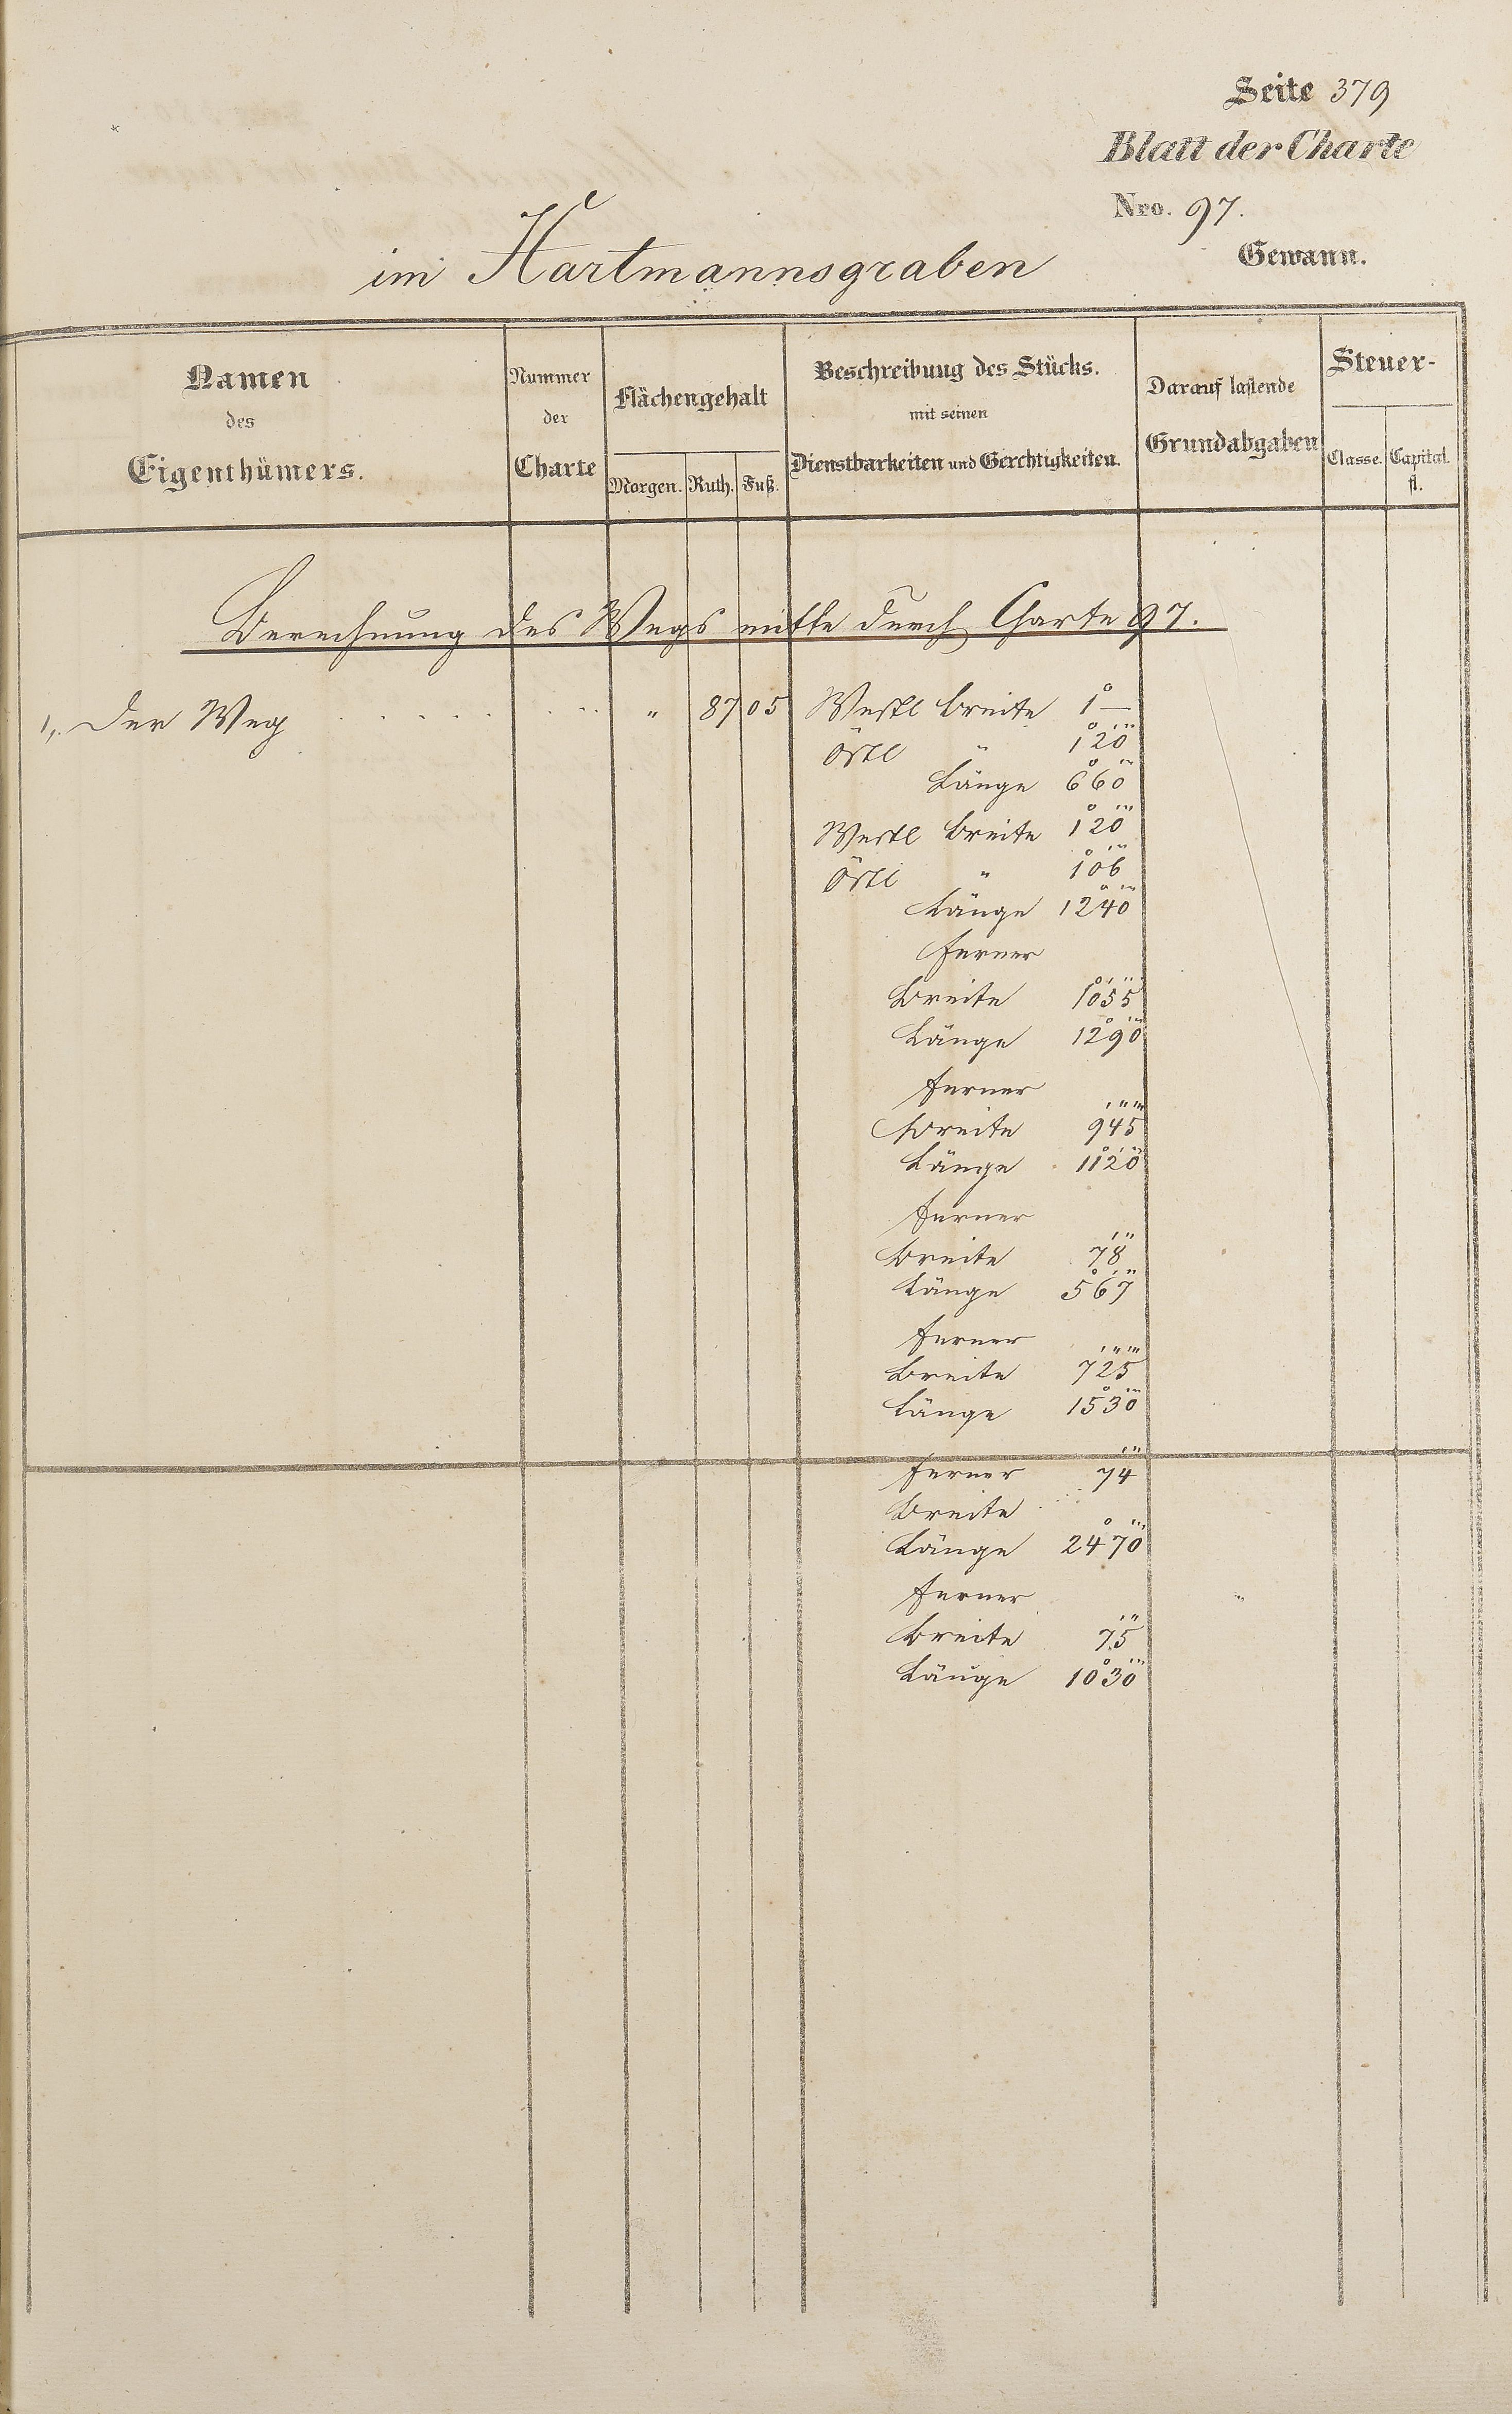 Seite 379
Blatt der Charte
Nro. 97.
Gewann.
im Hartmannsgraben
Namen des Eigenthümers.
Nummer der Charte
Flächengehalt
Morgen. Ruth. Fuß.
Beschreibung des Stücks.
mit seinen
Dienstbarkeiten und Gerchtigkeiten.
Darauf lastende
Grundabgaben
Steuer-
Classe. Capital.
fl.
Berechnung des Wegs mitte durch Charte 97.
1, Der Weg . . . . . . . . " 87 05 Westl breite 1° —
östl " 1° 2' 0"
Länge 6° 6' 0"
Westl breite 1° 2' 0"
östl " 1° 0' 6"
Länge 12° 4' 0"
ferner
breite 1° 0' 5" 5'''
Länge 12° 9' 0"
ferner
breite 9' 4" 5'''
Länge 11° 2' 0"
ferner
breite 7' 8"
Länge 5° 6' 7"
ferner
breite 7' 2" 5'''
Länge 15° 3' 0"
ferner 7' 4"
breite
Länge 24° 7' 0"
ferner
breite 7' 5"
Länge 10° 3' 0"